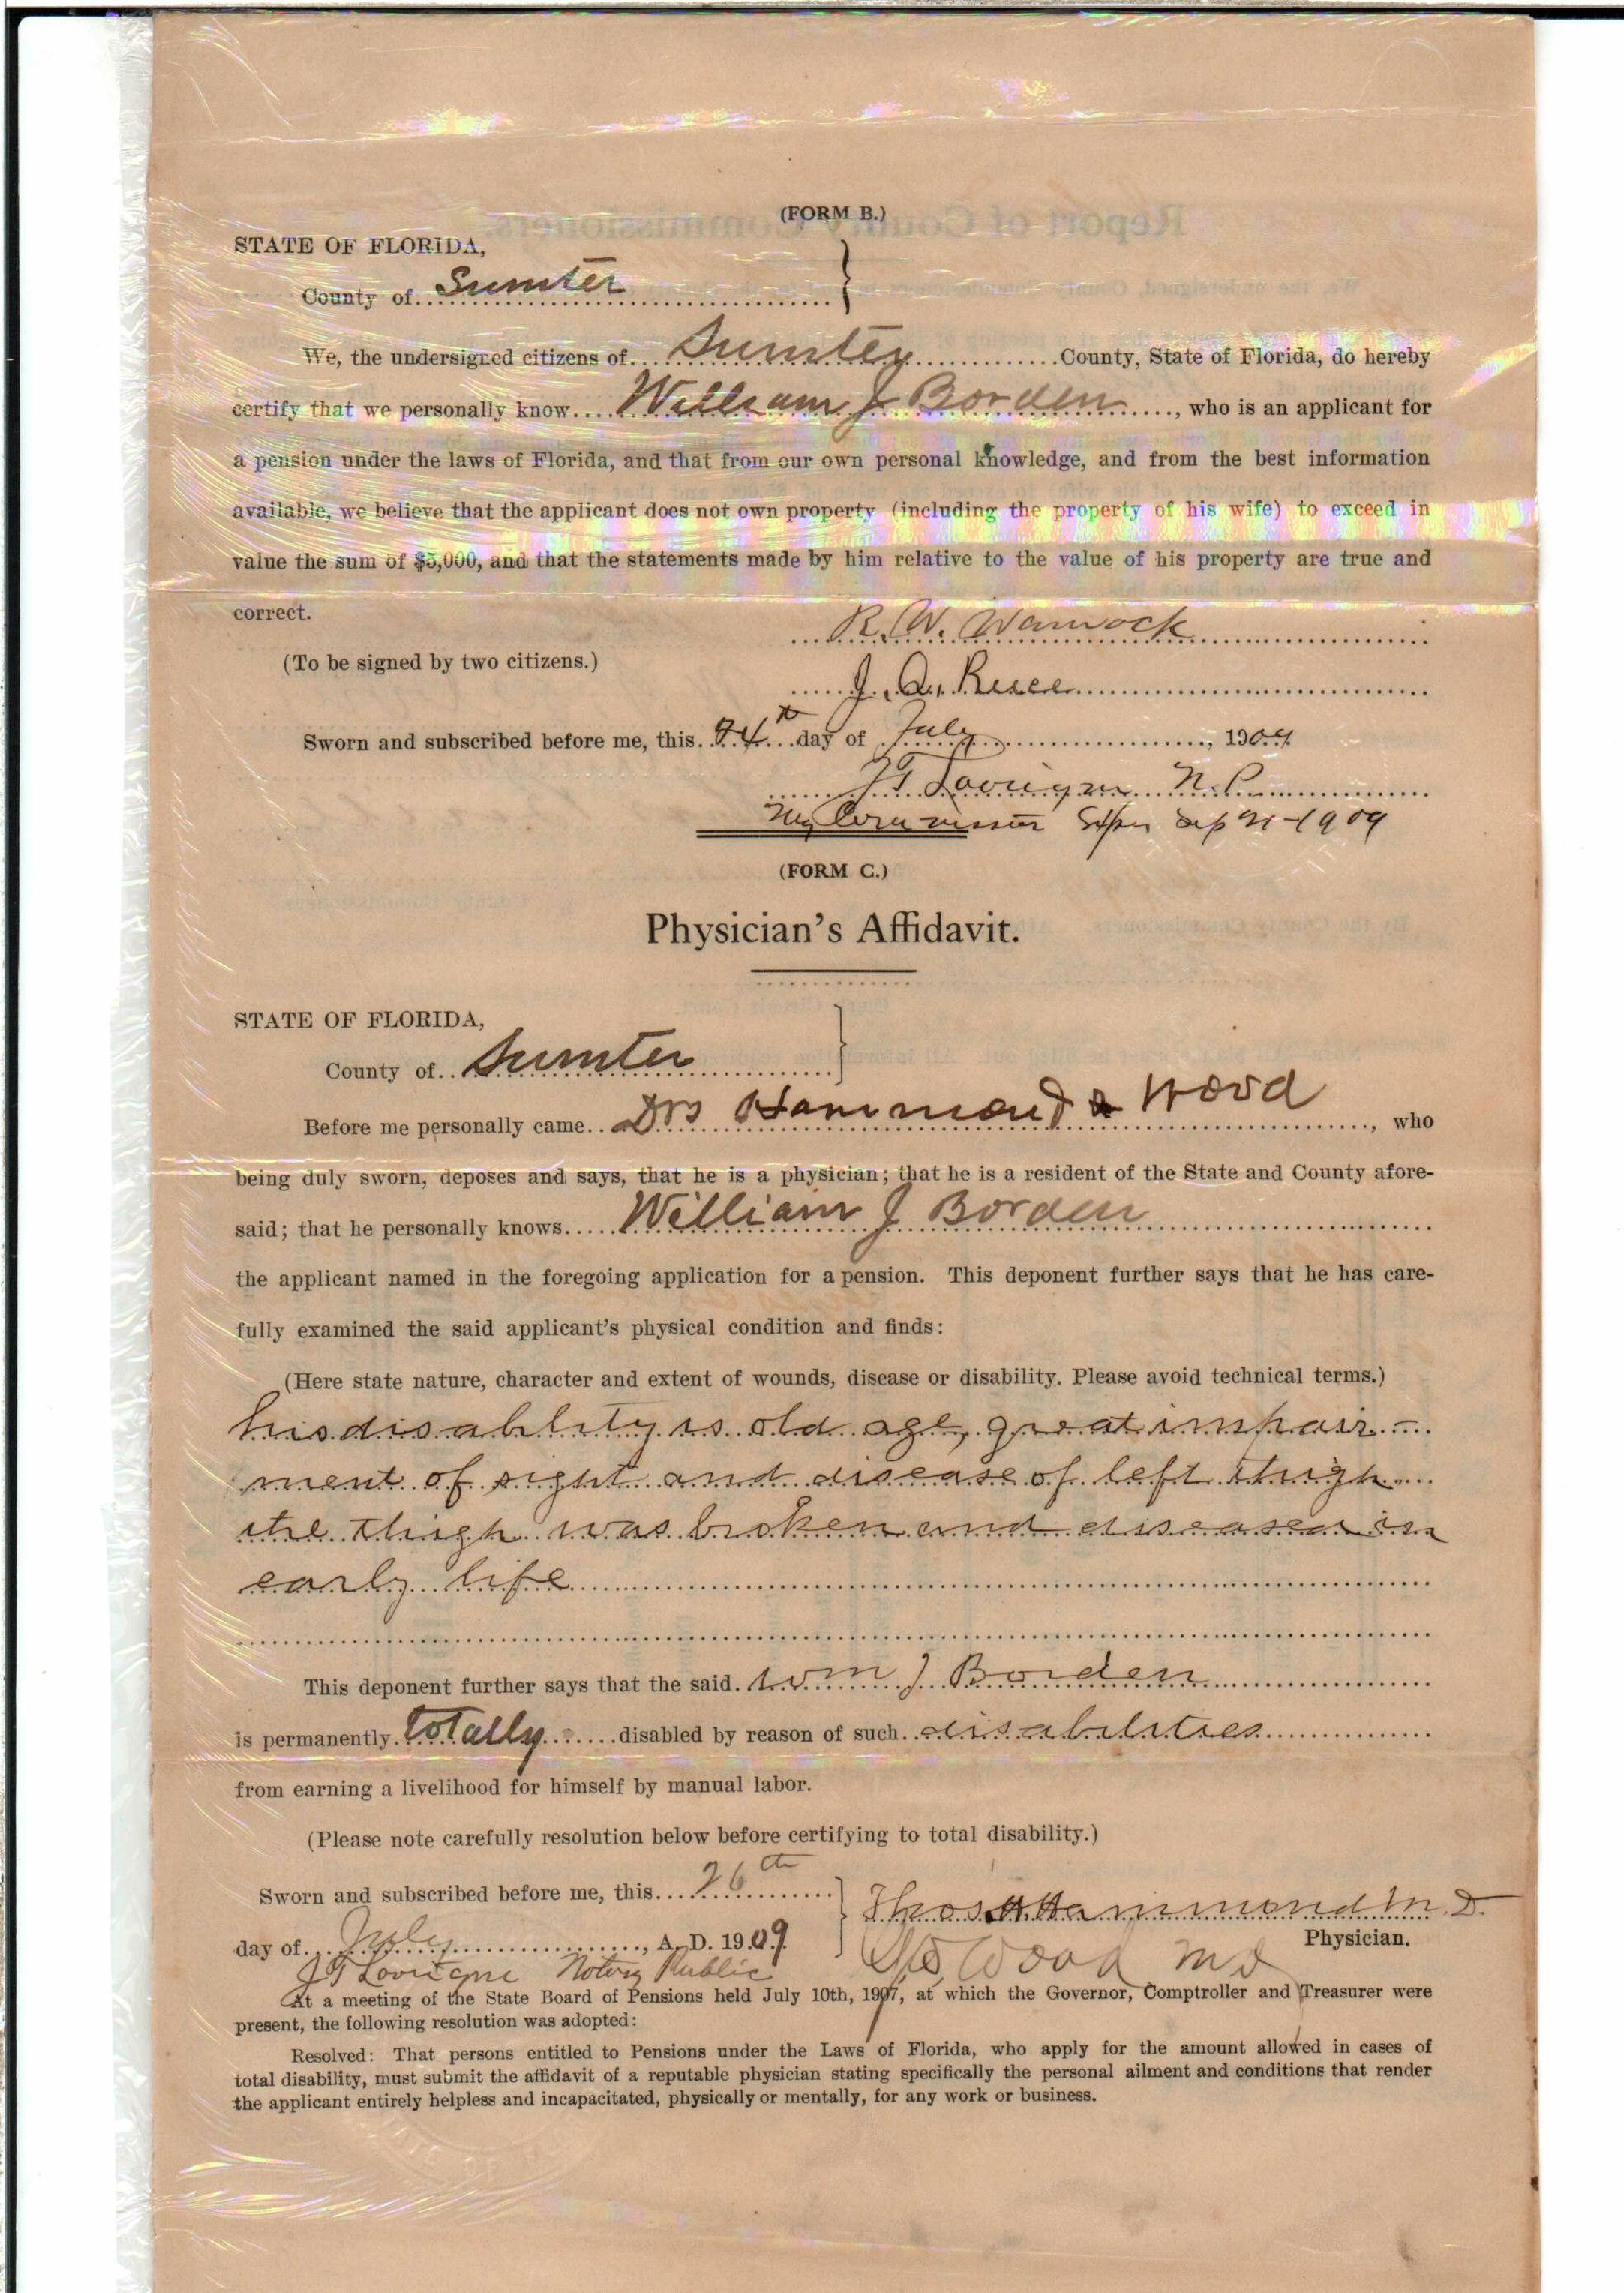 (FORM B.)
STATE OF FLORIDA,
County of Sumter
We, the undersigned citizens of Sumter County, State of Florida, do hereby
certify that we personally know William J Borden, who is an applicant for
a pension under the laws of Florida, and that from our own personal knowledge, and from the best information
available, we believe that the applicant does not own property (including the property of his wife) to exceed in
value the sum of $5,000, and that the statements made by him relative to the value of his property are true and
correct.
R. W. Warnock
(To be signed by two citizens.)
J. Q.
Sworn and subscribed before me, this 24th day of July, 1909
N. P.
My Commission Sep 21-1909
(FORM C.)
Physician's Affidavit.
STATE OF FLORIDA,
County of Sumter
Before me personally came Drs Hammond & Wood, who
being duly sworn, deposes and says, that he is a physician; that he is a resident of the State and County afore-
said; that he personally knows William J Borden
the applicant named in the foregoing application for a pension. This deponent further says that he has care-
fully examined the said applicant's physical condition and finds:
(Here state nature, character and extent of wounds, disease or disability. Please avoid technical terms.)
his disability is old age, great impair-
ment of sight and disease of left thigh
the thigh was broken and diseased in
early life
This deponent further says that the said Wm J Borden
is permanently totally disabled by reason of such disabilities
from earning a livelihood for himself by manual labor.
(Please note carefully resolution below before certifying to total disability.)
Sworn and subscribed before me, this 26th
Thos H Hammond M.D.
day of July, A. D. 1909.
Physician.
Wood MD
Notary Public
At a meeting of the State Board of Pensions held July 10th, 1907, at which the Governor, Comptroller and Treasurer were
present, the following resolution was adopted:
Resolved: That persons entitled to Pensions under the Laws of Florida, who apply for the amount allowed in cases of
total disability, must submit the affidavit of a reputable physician stating specifically the personal ailment and conditions that render
the applicant entirely helpless and incapacitated, physically or mentally, for any work or business.